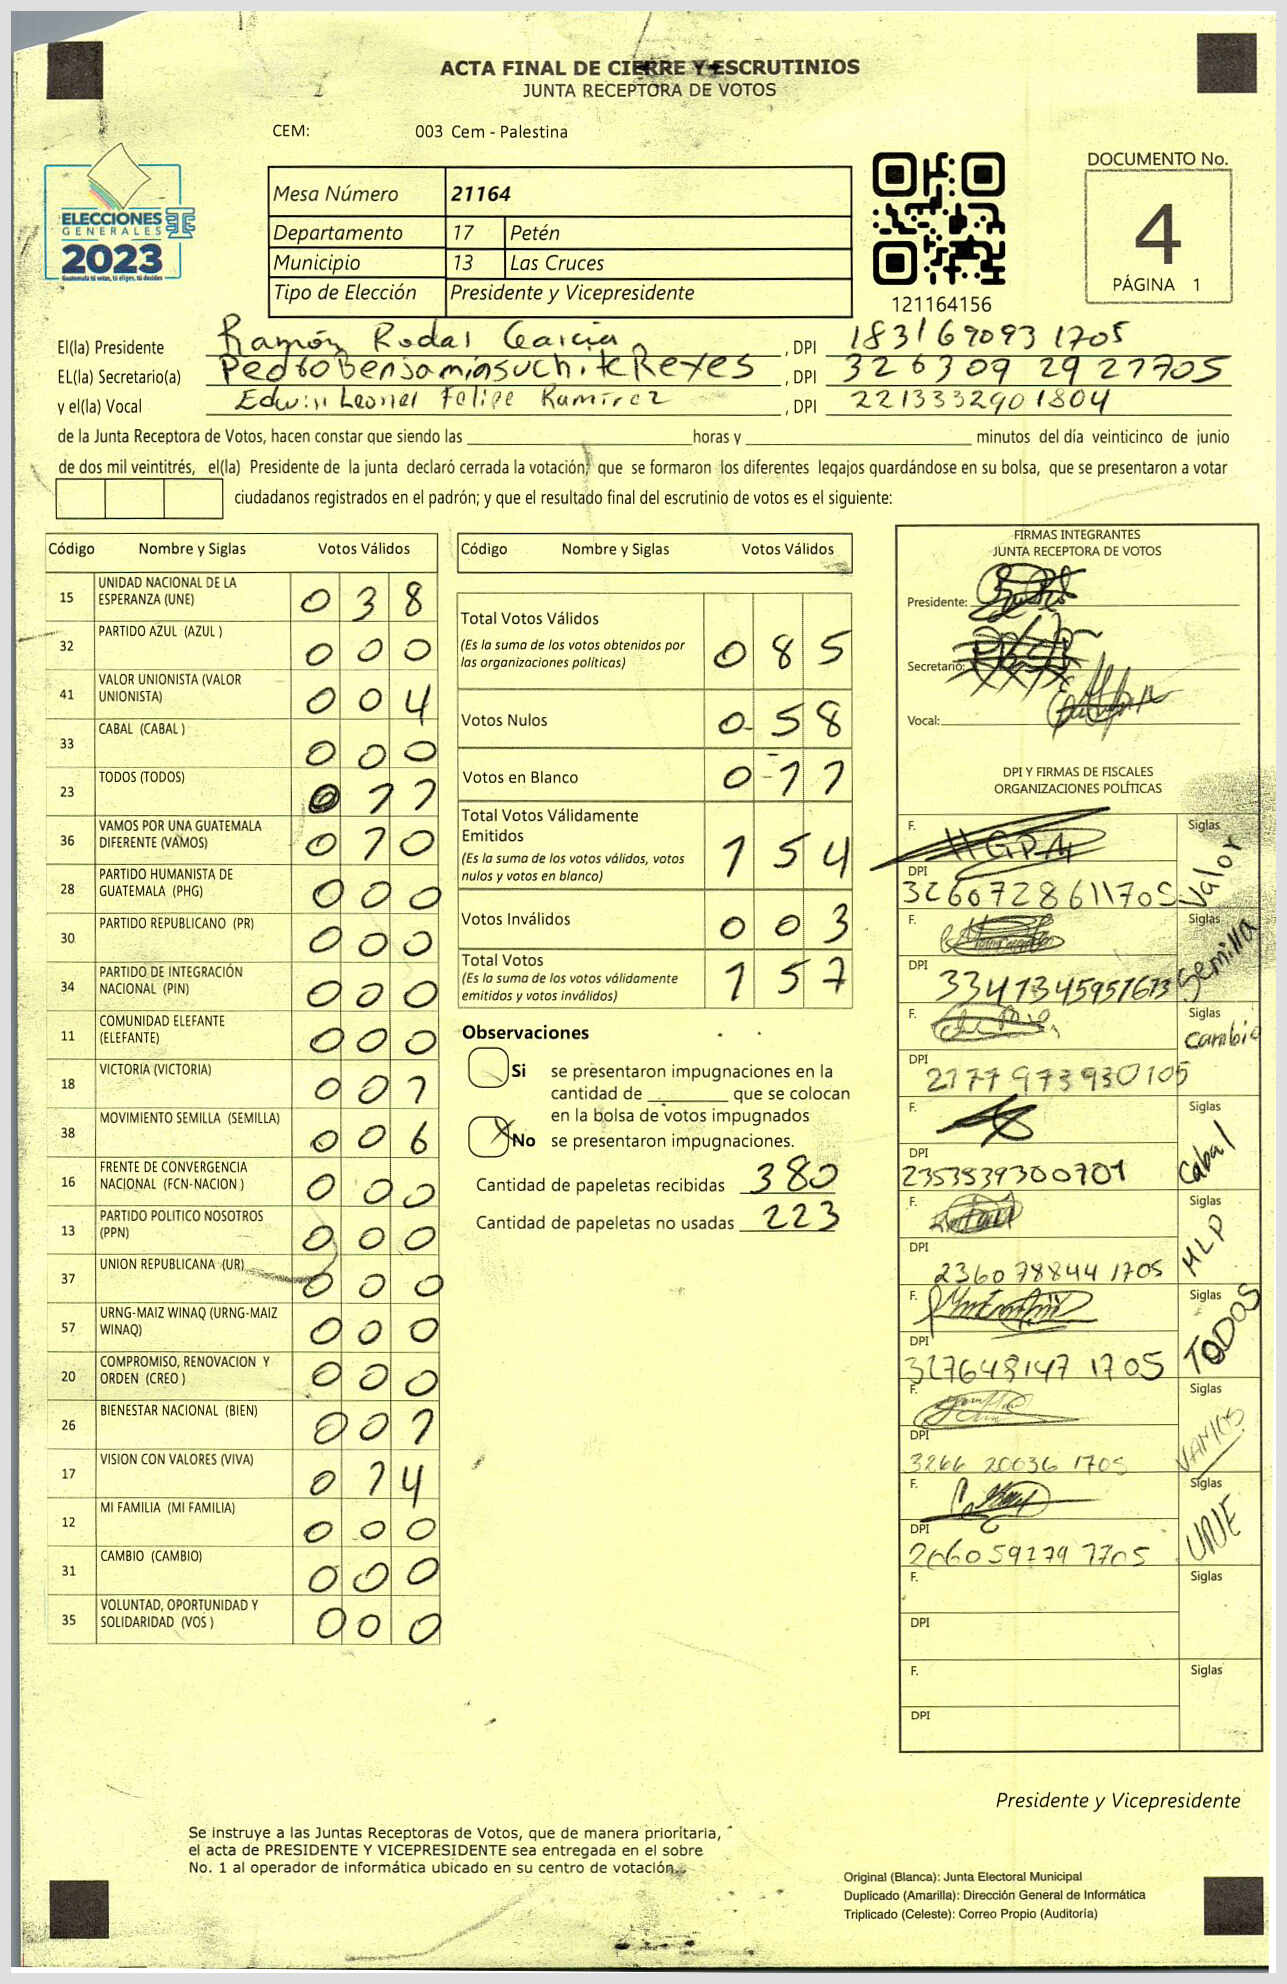 ACTA FINAL DE CIERRE Y ESCRUTINIOS
JUNTA RECEPTORA DE VOTOS
CEM: 003 Cem - Palestina
ELECCIONES
GENERALES
2023
Guatemala tú votas, tú eliges, tú decides
Mesa Número 21164
Departamento 17 Petén
Municipio 13 Las Cruces
Tipo de Elección Presidente y Vicepresidente
121164156
DOCUMENTO No.
4
PÁGINA 1
El(la) Presidente Ramón Rodal García, DPI 183169093 1705
EL(la) Secretario(a) Pedro Benjamin suchite Reyes, DPI 326309 29 21705
y el(la) Vocal Edwin Leonel Felipe Ramírez, DPI 2213332901804
de la Junta Receptora de Votos, hacen constar que siendo las horas y minutos del día veinticinco de junio
de dos mil veintitrés, el(la) Presidente de la junta declaró cerrada la votación, que se formaron los diferentes legajos guardándose en su bolsa, que se presentaron a votar
ciudadanos registrados en el padrón; y que el resultado final del escrutinio de votos es el siguiente:
Código Nombre y Siglas Votos Válidos
15 UNIDAD NACIONAL DE LA ESPERANZA (UNE) 0 3 8
32 PARTIDO AZUL (AZUL ) 0 0 0
41 VALOR UNIONISTA (VALOR UNIONISTA) 0 0 4
33 CABAL (CABAL ) 0 0 0
23 TODOS (TODOS) 0 1 1
36 VAMOS POR UNA GUATEMALA DIFERENTE (VAMOS) 0 1 0
28 PARTIDO HUMANISTA DE GUATEMALA (PHG) 0 0 0
30 PARTIDO REPUBLICANO (PR) 0 0 0
34 PARTIDO DE INTEGRACIÓN NACIONAL (PIN) 0 0 0
11 COMUNIDAD ELEFANTE (ELEFANTE) 0 0 0
18 VICTORIA (VICTORIA) 0 0 1
38 MOVIMIENTO SEMILLA (SEMILLA) 0 0 6
16 FRENTE DE CONVERGENCIA NACIONAL (FCN-NACION ) 0 0 0
13 PARTIDO POLITICO NOSOTROS (PPN) 0 0 0
37 UNION REPUBLICANA (UR) 0 0 0
57 URNG-MAIZ WINAQ (URNG-MAIZ WINAQ) 0 0 0
20 COMPROMISO, RENOVACION Y ORDEN (CREO ) 0 0 0
26 BIENESTAR NACIONAL (BIEN) 0 0 1
17 VISION CON VALORES (VIVA) 0 1 4
12 MI FAMILIA (MI FAMILIA) 0 0 0
31 CAMBIO (CAMBIO) 0 0 0
35 VOLUNTAD, OPORTUNIDAD Y SOLIDARIDAD (VOS ) 0 0 0
Código Nombre y Siglas Votos Válidos
Total Votos Válidos 0 8 5
(Es la suma de los votos obtenidos por
las organizaciones políticas)
Votos Nulos 0 5 8
Votos en Blanco 0 1 1
Total Votos Válidamente
Emitidos 1 5 4
(Es la suma de los votos válidos, votos
nulos y votos en blanco)
Votos Inválidos 0 0 3
Total Votos 1 5 7
(Es la suma de los votos válidamente
emitidos y votos inválidos)
Observaciones
Si se presentaron impugnaciones en la
cantidad de que se colocan
en la bolsa de votos impugnados
X No se presentaron impugnaciones.
Cantidad de papeletas recibidas 380
Cantidad de papeletas no usadas 223
FIRMAS INTEGRANTES
JUNTA RECEPTORA DE VOTOS
Presidente:
Secretario:
Vocal:
DPI Y FIRMAS DE FISCALES
ORGANIZACIONES POLÍTICAS
F. Siglas Valor
DPI 3260728611705
F. Siglas Semilla
DPI
F. Siglas Cambio
DPI 2177973930105
F. Siglas Cabal
DPI 2353539300701
F. Siglas MLP
DPI 2360788441705
F. Siglas TODOS
DPI 327648147 1705
F. Siglas VAMOS
DPI 3266 20036 1705
F. Siglas UNE
DPI 2660591791705
F. Siglas
DPI
F. Siglas
DPI
Presidente y Vicepresidente
Se instruye a las Juntas Receptoras de Votos, que de manera prioritaria,
el acta de PRESIDENTE Y VICEPRESIDENTE sea entregada en el sobre
No. 1 al operador de informática ubicado en su centro de votación.
Original (Blanca): Junta Electoral Municipal
Duplicado (Amarilla): Dirección General de Informática
Triplicado (Celeste): Correo Propio (Auditoría)